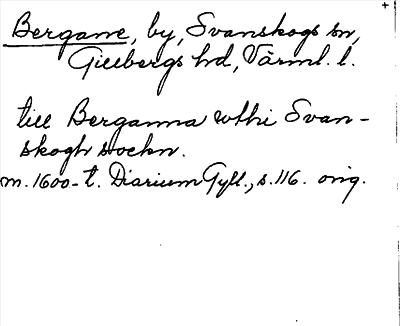 Bergane, by, Svanskogs sn,
Gillbergs hd, Värml. l.
till Berganna wthi Svan-
skogh sockn.
m. 1600-t. Diarium Gyll., s. 116. orig.